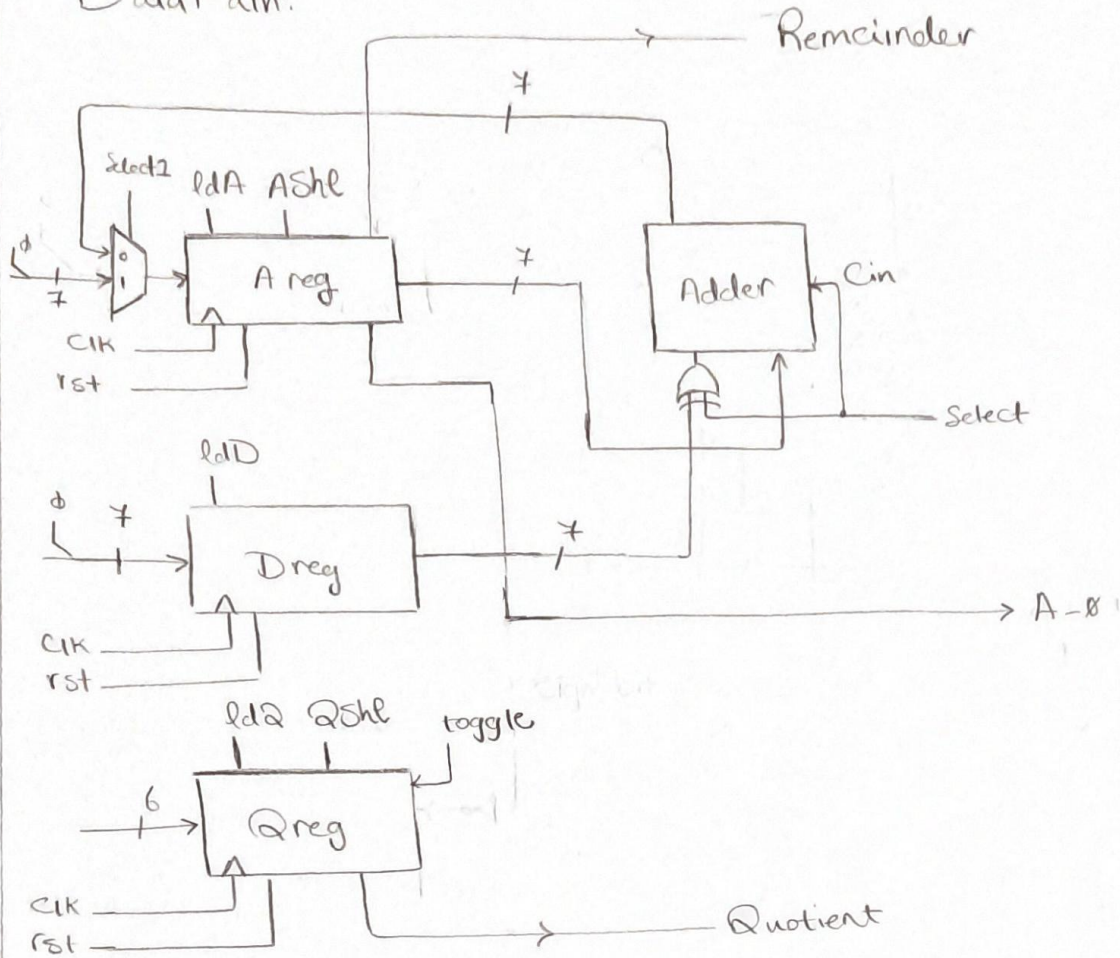 Remainder
7
Select2
ldA AShl
0
7
0
1
A reg
7
Adder
Cin
Clk
rst
Select
ldD
0
7
7
D reg
A-0
Clk
rst
ldQ QShl toggle
6
Q reg
Clk
rst
Quotient